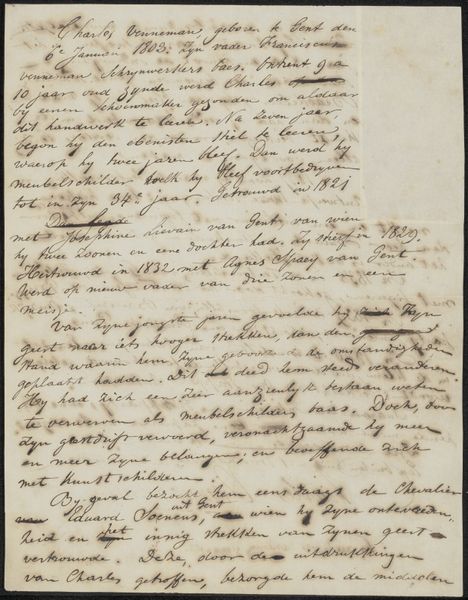 Charles Venneman, geboren te Gent den
6e Januari 1803. Zyn vader Franciscus
Venneman Schrynwerkers baes. Ontrent 9 a
10 jaar oud zynde werd Charles
by eenen schoenmaker gezonden om aldaar
dit handwerk te leeren. Na zeven jaar,
begon hy den ebenisten stiel te leeren,
waerop hy twee jaren bleef. Dan werd hy
meubelschilder welk hy bleef voortbedryven
tot in zyn 34ste jaar. Getrouwd in 1821
met Josephine Lievain van Gent, van wien
hy twee zoonen en eene dochter had. Zy stierf in 1829.
Hertrouwd in 1832 met Agnes Spaey van Gent.
Werd op nieuw vader van drie zonen en een
meisje.
Van zyne jongste jaren gevoelde hy zyn
geest naar iets hooger trekken, dan den
stand waarin hem zyne geboorte & de omstandigheden
geplaatst hadden. Dit deed hem steeds veranderen.
Hy had zich een zeer aanzienlyk bestaan weten
te verwerven als meubelschilders baas. Doch, door
zyn geestdrift vervoerd, veronachtzaamde hy meer
en meer zyne belangen, en beoeffende zich
met kunstschilderen.
By geval bezocht hem eensdaags de Chevalier
Eduard Soenens, uit Gent wien hy zyne ontevreden-
heid en het innig trekken van zynen geest
vertrouwde. Deze, door de uitdrukkingen
van Charles getroffen, bezorgde hem de middelen